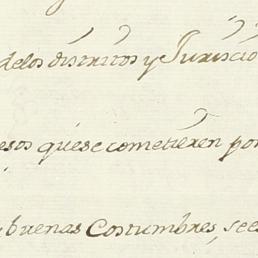 delos distritos y Jurisdic
esos q.e se cometieren por
buenas Costumbres, se e